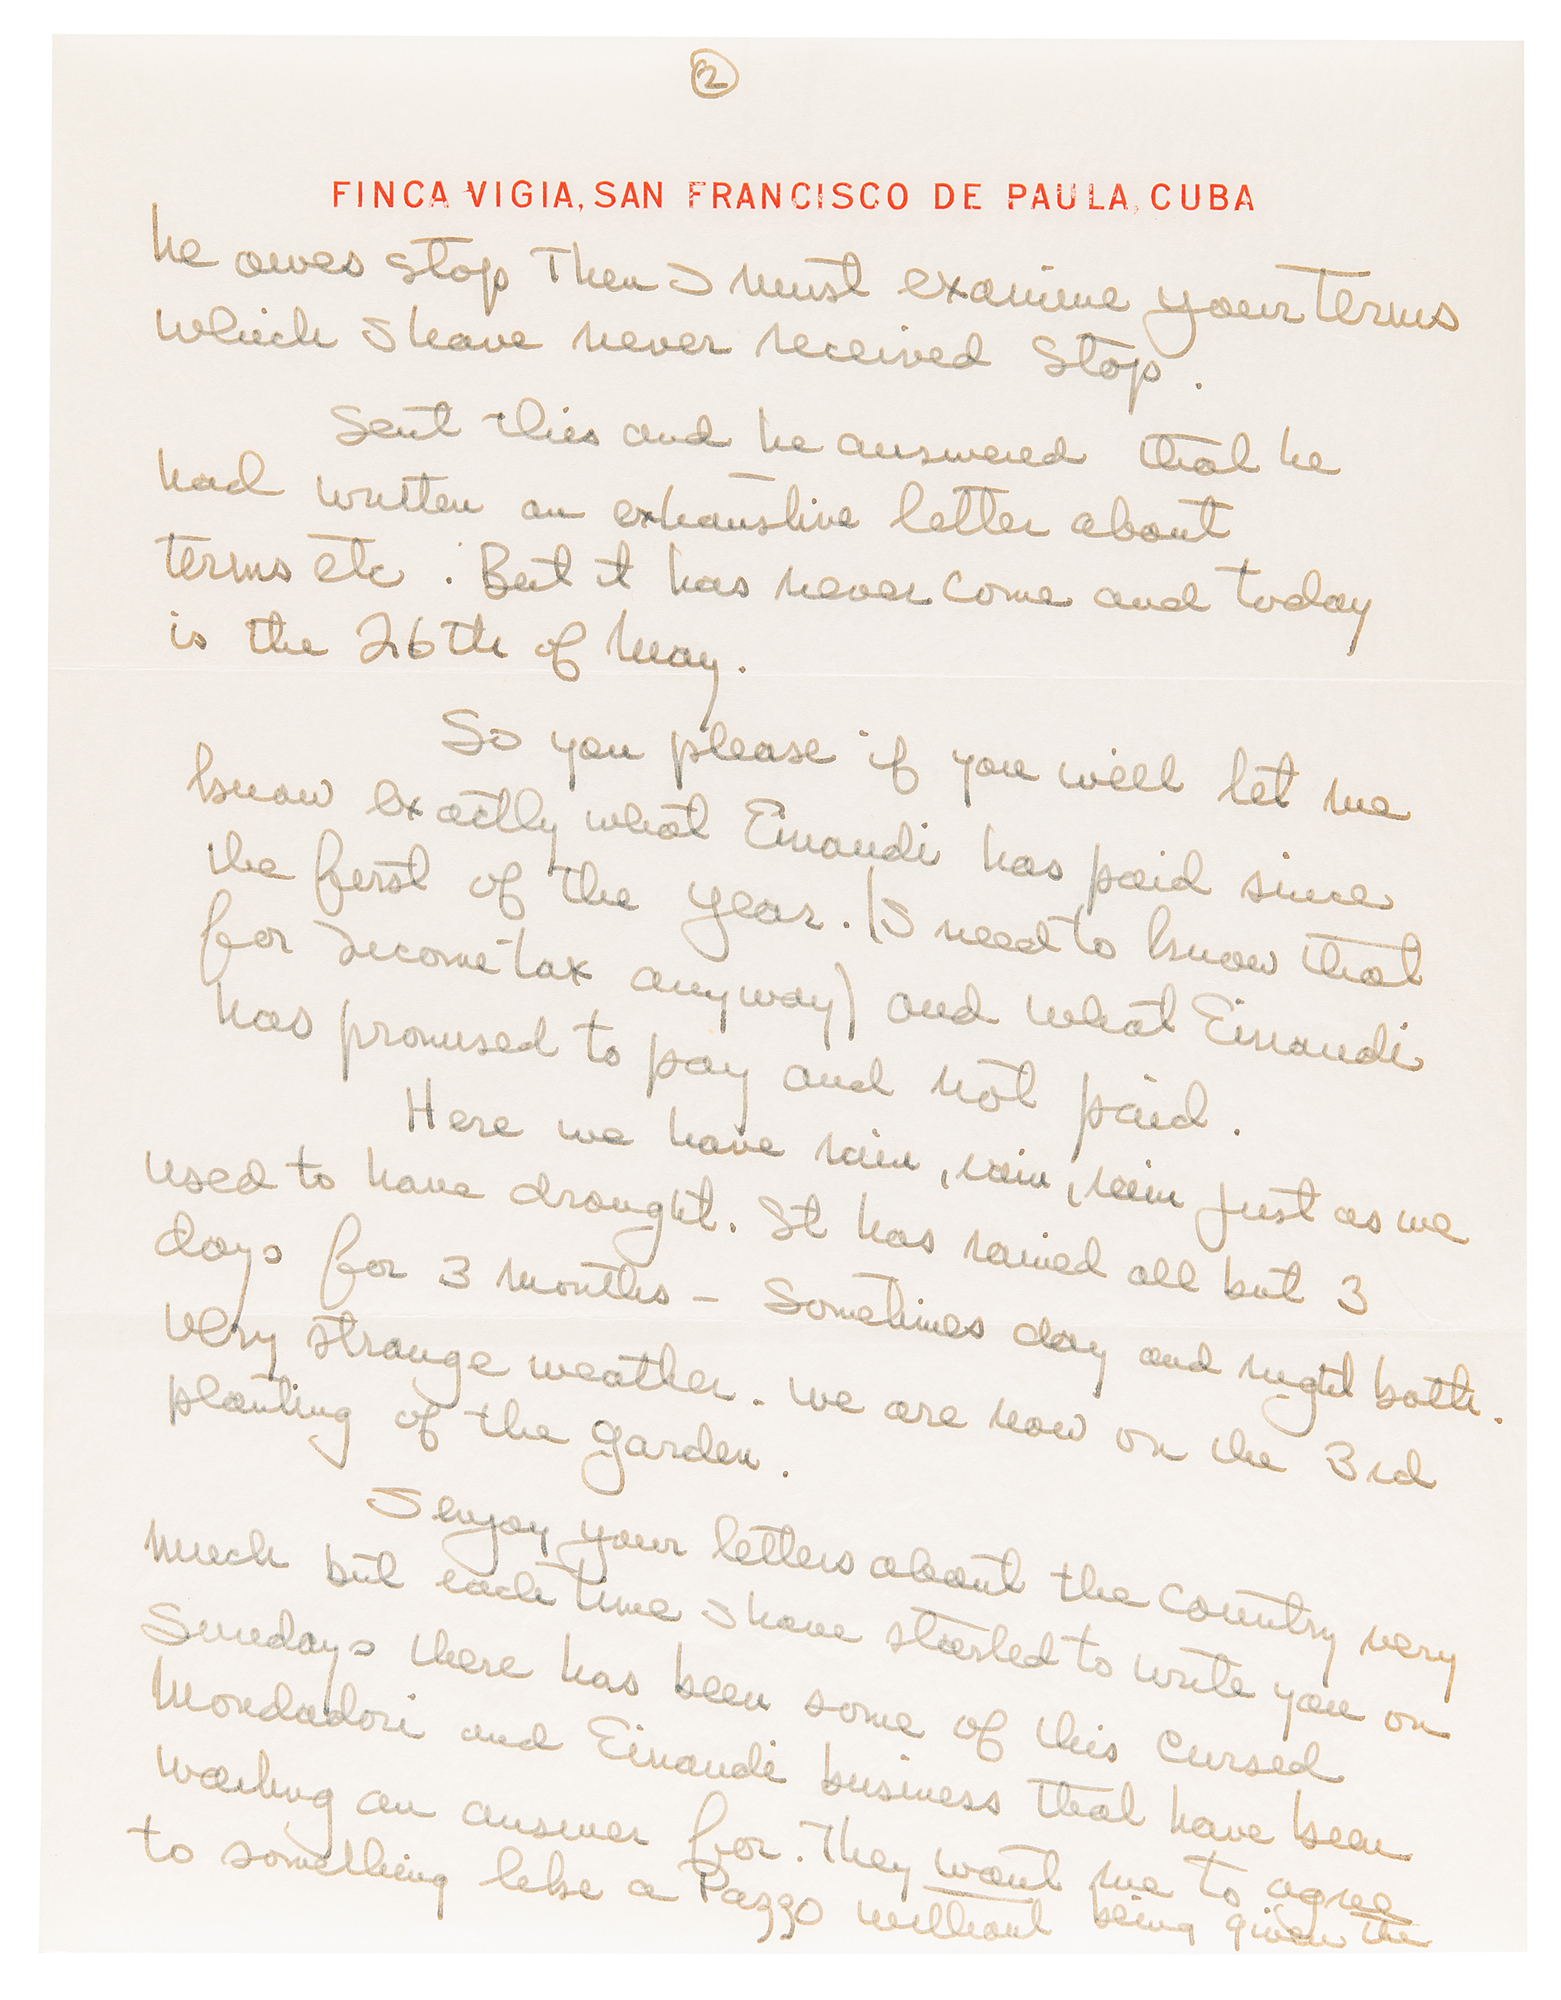 2
FINCA VIGIA, SAN FRANCISCO DE PAULA, CUBA
he owes stop Then I must examine your terms
which I have never received Stop.
Sent this and he answered that he
had written an exhaustive letter about
terms etc. But it has never come and today
is the 26th of May.
So you please if you will let me
know exactly what Einaudi has paid since
the first of the year. (I need to know that
for Income tax anyway) and what Einaudi
has promised to pay and not paid.
Here we have rain, rain, rain just as we
used to have drought. It has rained all but 3
days for 3 months - Sometimes day and night both.
Very strange weather. We are now on the 3rd
planting of the garden.
I enjoy your letters about the country very
much but each time I have started to write you on
Sundays there has been some of this cursed
Mondadori and Einaudi business that have been
waiting an answer for. They want me to agree
to something like a Pazzo without being given the